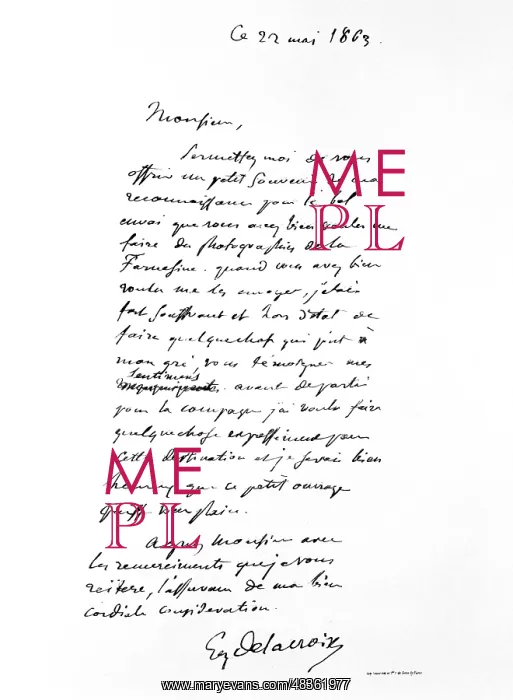 Ce 22 mai 1863.
Monsieur,
Permettez moi de vous
offrir un petit souvenir de ma
reconnaissance pour le bel
envoi que vous avez bien voulu me
faire des photographies de la
Farnesine. quand vous avez bien
voulu me les envoyer, j'étais
fort souffrant et hors d'état de
faire quelquechose qui put à
mon gré, vous témoigner mes
sentimens
avant de partir
pour la campagne j'ai voulu faire
quelquechose expressément pour
cette destination et je serais bien
heureux que ce petit ouvrage
vous plaire.
Agréez Monsieur avec
les remerciements que je vous
reitere, l'assurance de ma bien
cordiale consideration.
Eug Delacroix
ME
PL
ME
PL
www.maryevans.com/48361977